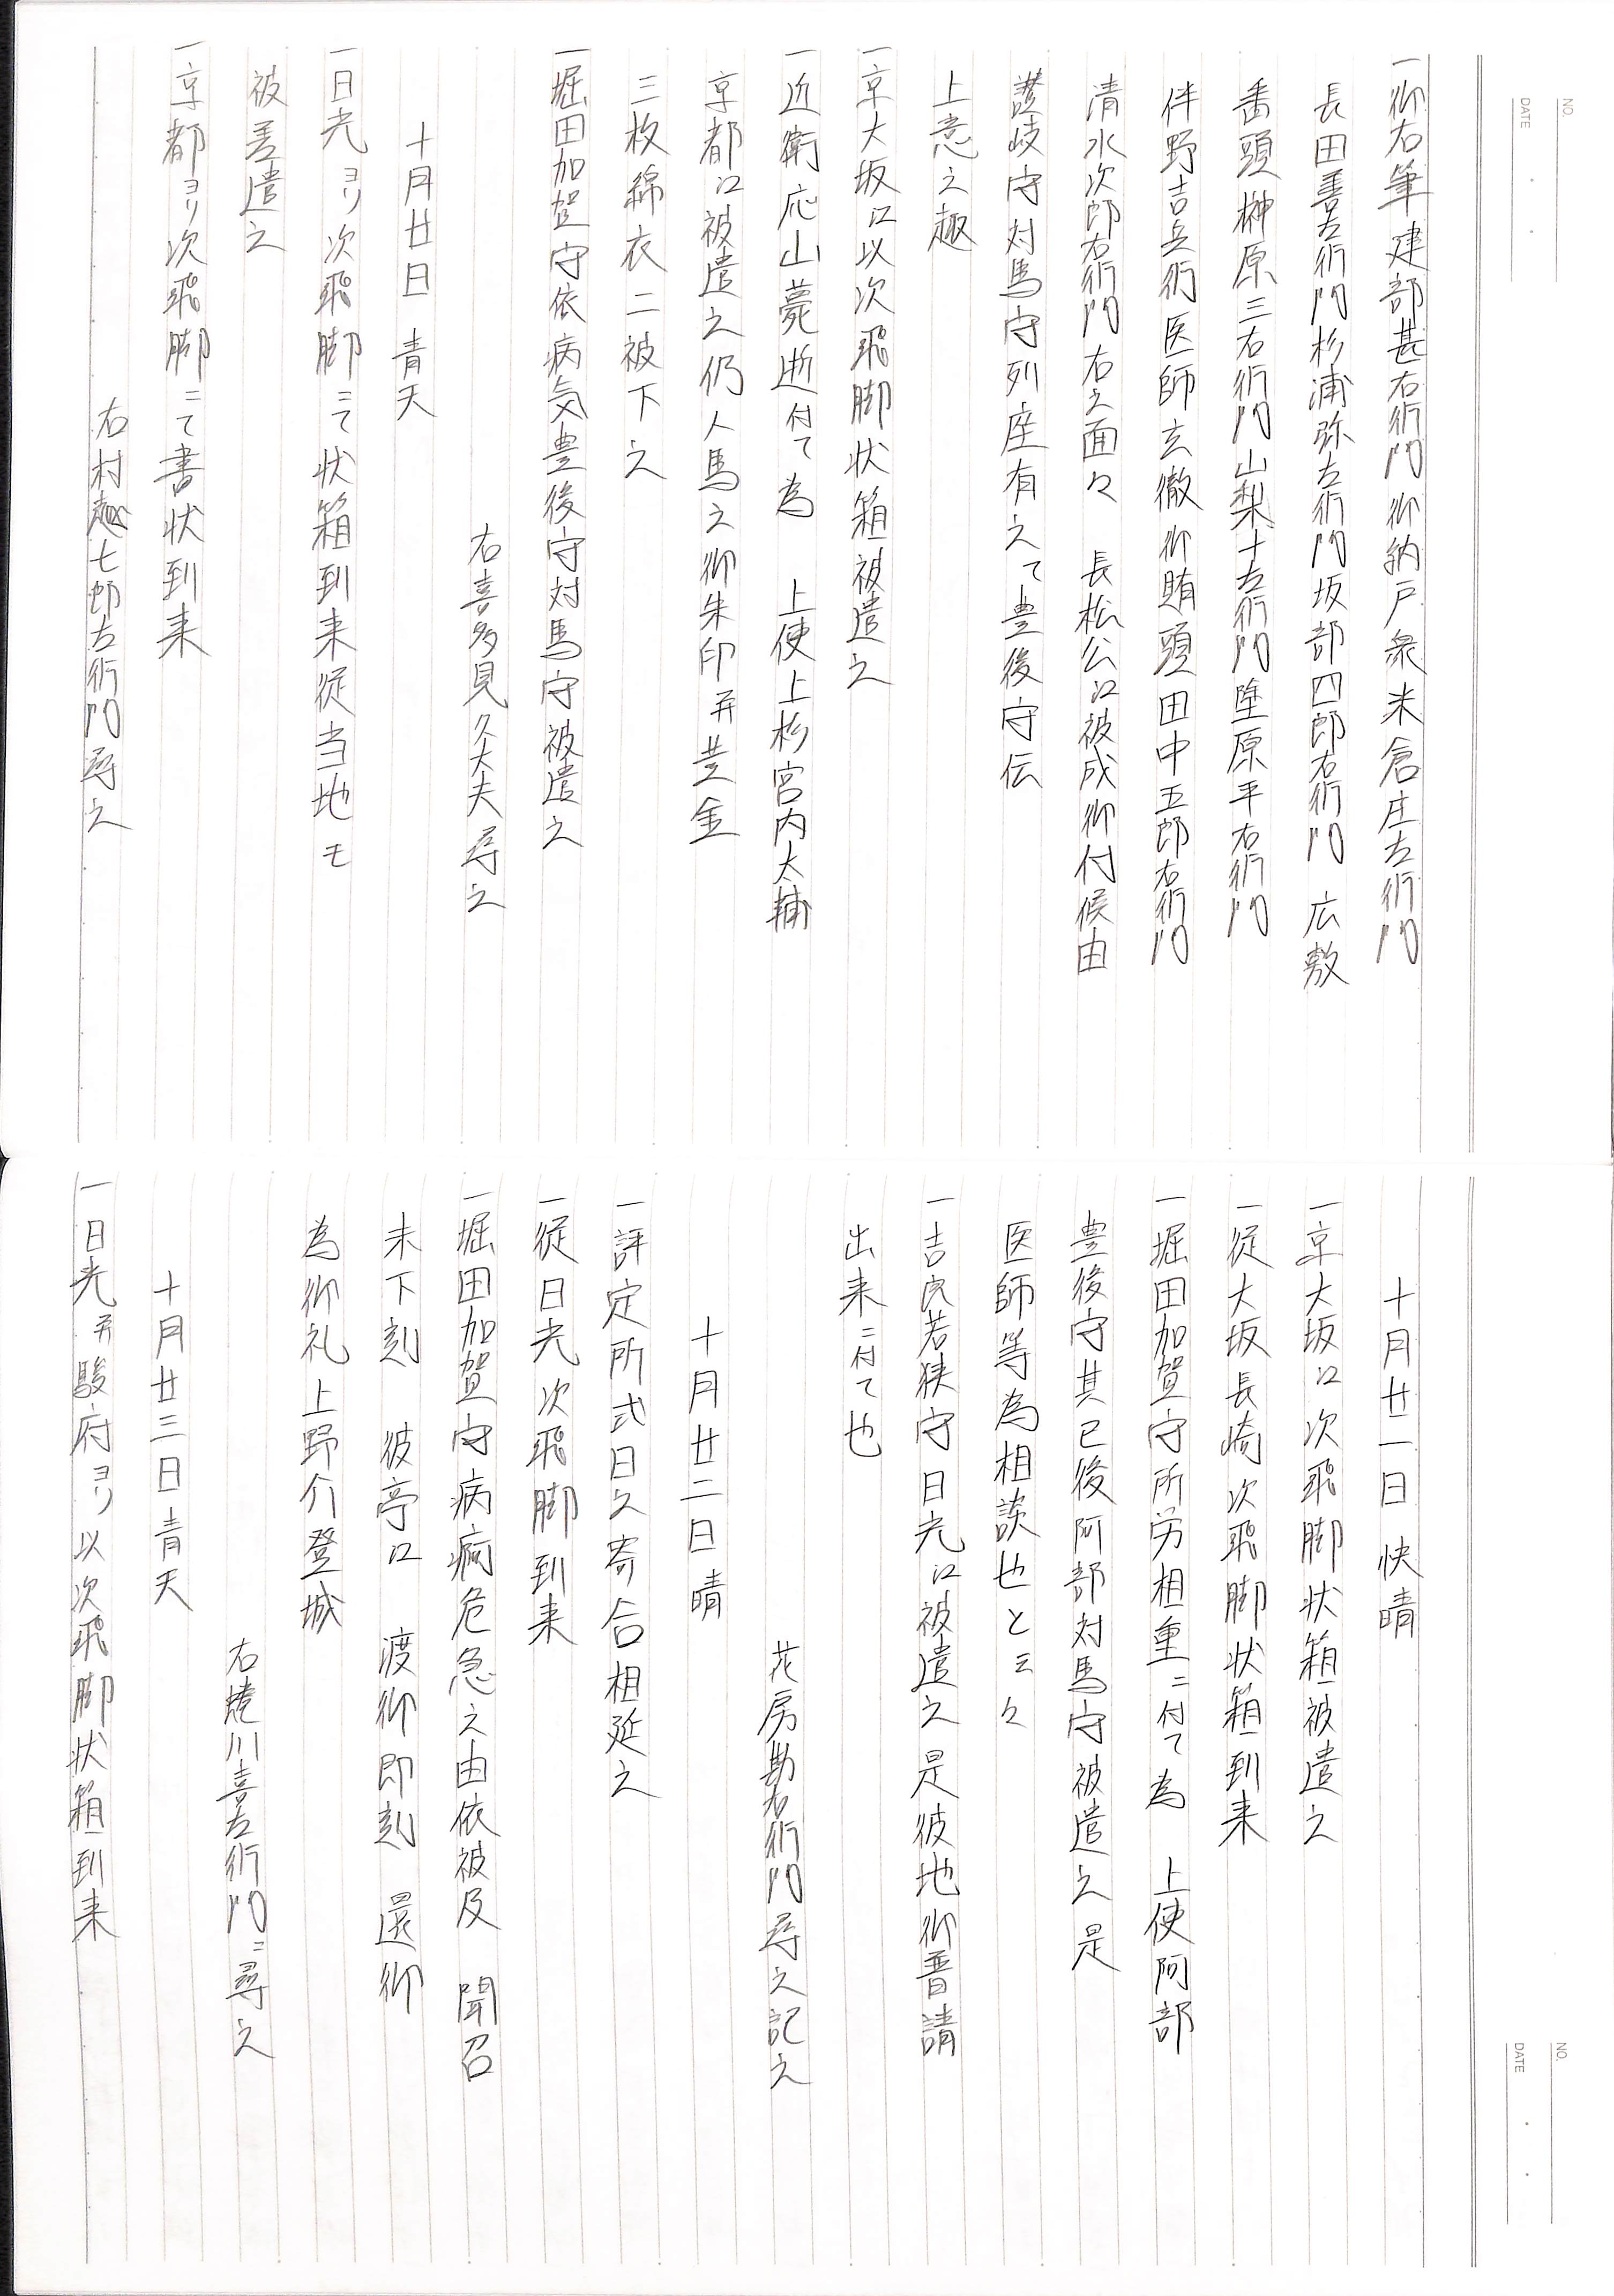 NO.
DATE
一御右筆建部甚右衛門御納戸衆米倉庄左衛門
長田善左衛門杉浦弥左衛門坂部四郎右衛門 広敷
番頭榊原三右衛門山梨十左衛門塗原平右衛門
伴野吉兵衛医師玄徹御賄頭田中五郎右衛門
清水次郎右衛門右之面々 長松公江被成御付候由
讃岐守対馬守列座有之て豊後守伝
上意之趣
一京大坂江以次飛脚状箱被遣之
一近衛応山薨逝付て為 上使上杉宮内大輔
京都江被遣之仍人馬之御朱印并黄金
三枚綿衣二被下之
一堀田加賀守依病気豊後守対馬守被遣之
右喜多見久大夫尋之
十月廿日 青天
一日光ヨリ次飛脚ニて状箱到来従当地モ
被差遣之
一京都ヨリ次飛脚ニて書状到来
右村越七郎左衛門尋之
NO.
DATE
十月廿一日 快晴
一京大坂江次飛脚状箱被遣之
一従大坂長崎次飛脚状箱到来
一堀田加賀守所労相重ニ付て為 上使阿部
豊後守其已後阿部対馬守被遣之 是
医師等為相談也と云々
一吉良若狭守日光江被遣之是彼地御普請
出来ニ付て也
花房勘右衛門尋之記之
十月廿二日 晴
一評定所式日之寄合相延之
一従日光次飛脚到来
一堀田加賀守病痾危急之由依被及 聞召
未下刻 彼亭江 渡御即刻 還御
為御礼上野介登城
右蜷川喜左衛門ニ尋之
十月廿三日青天
一日光并駿府ヨリ以次飛脚状箱到来